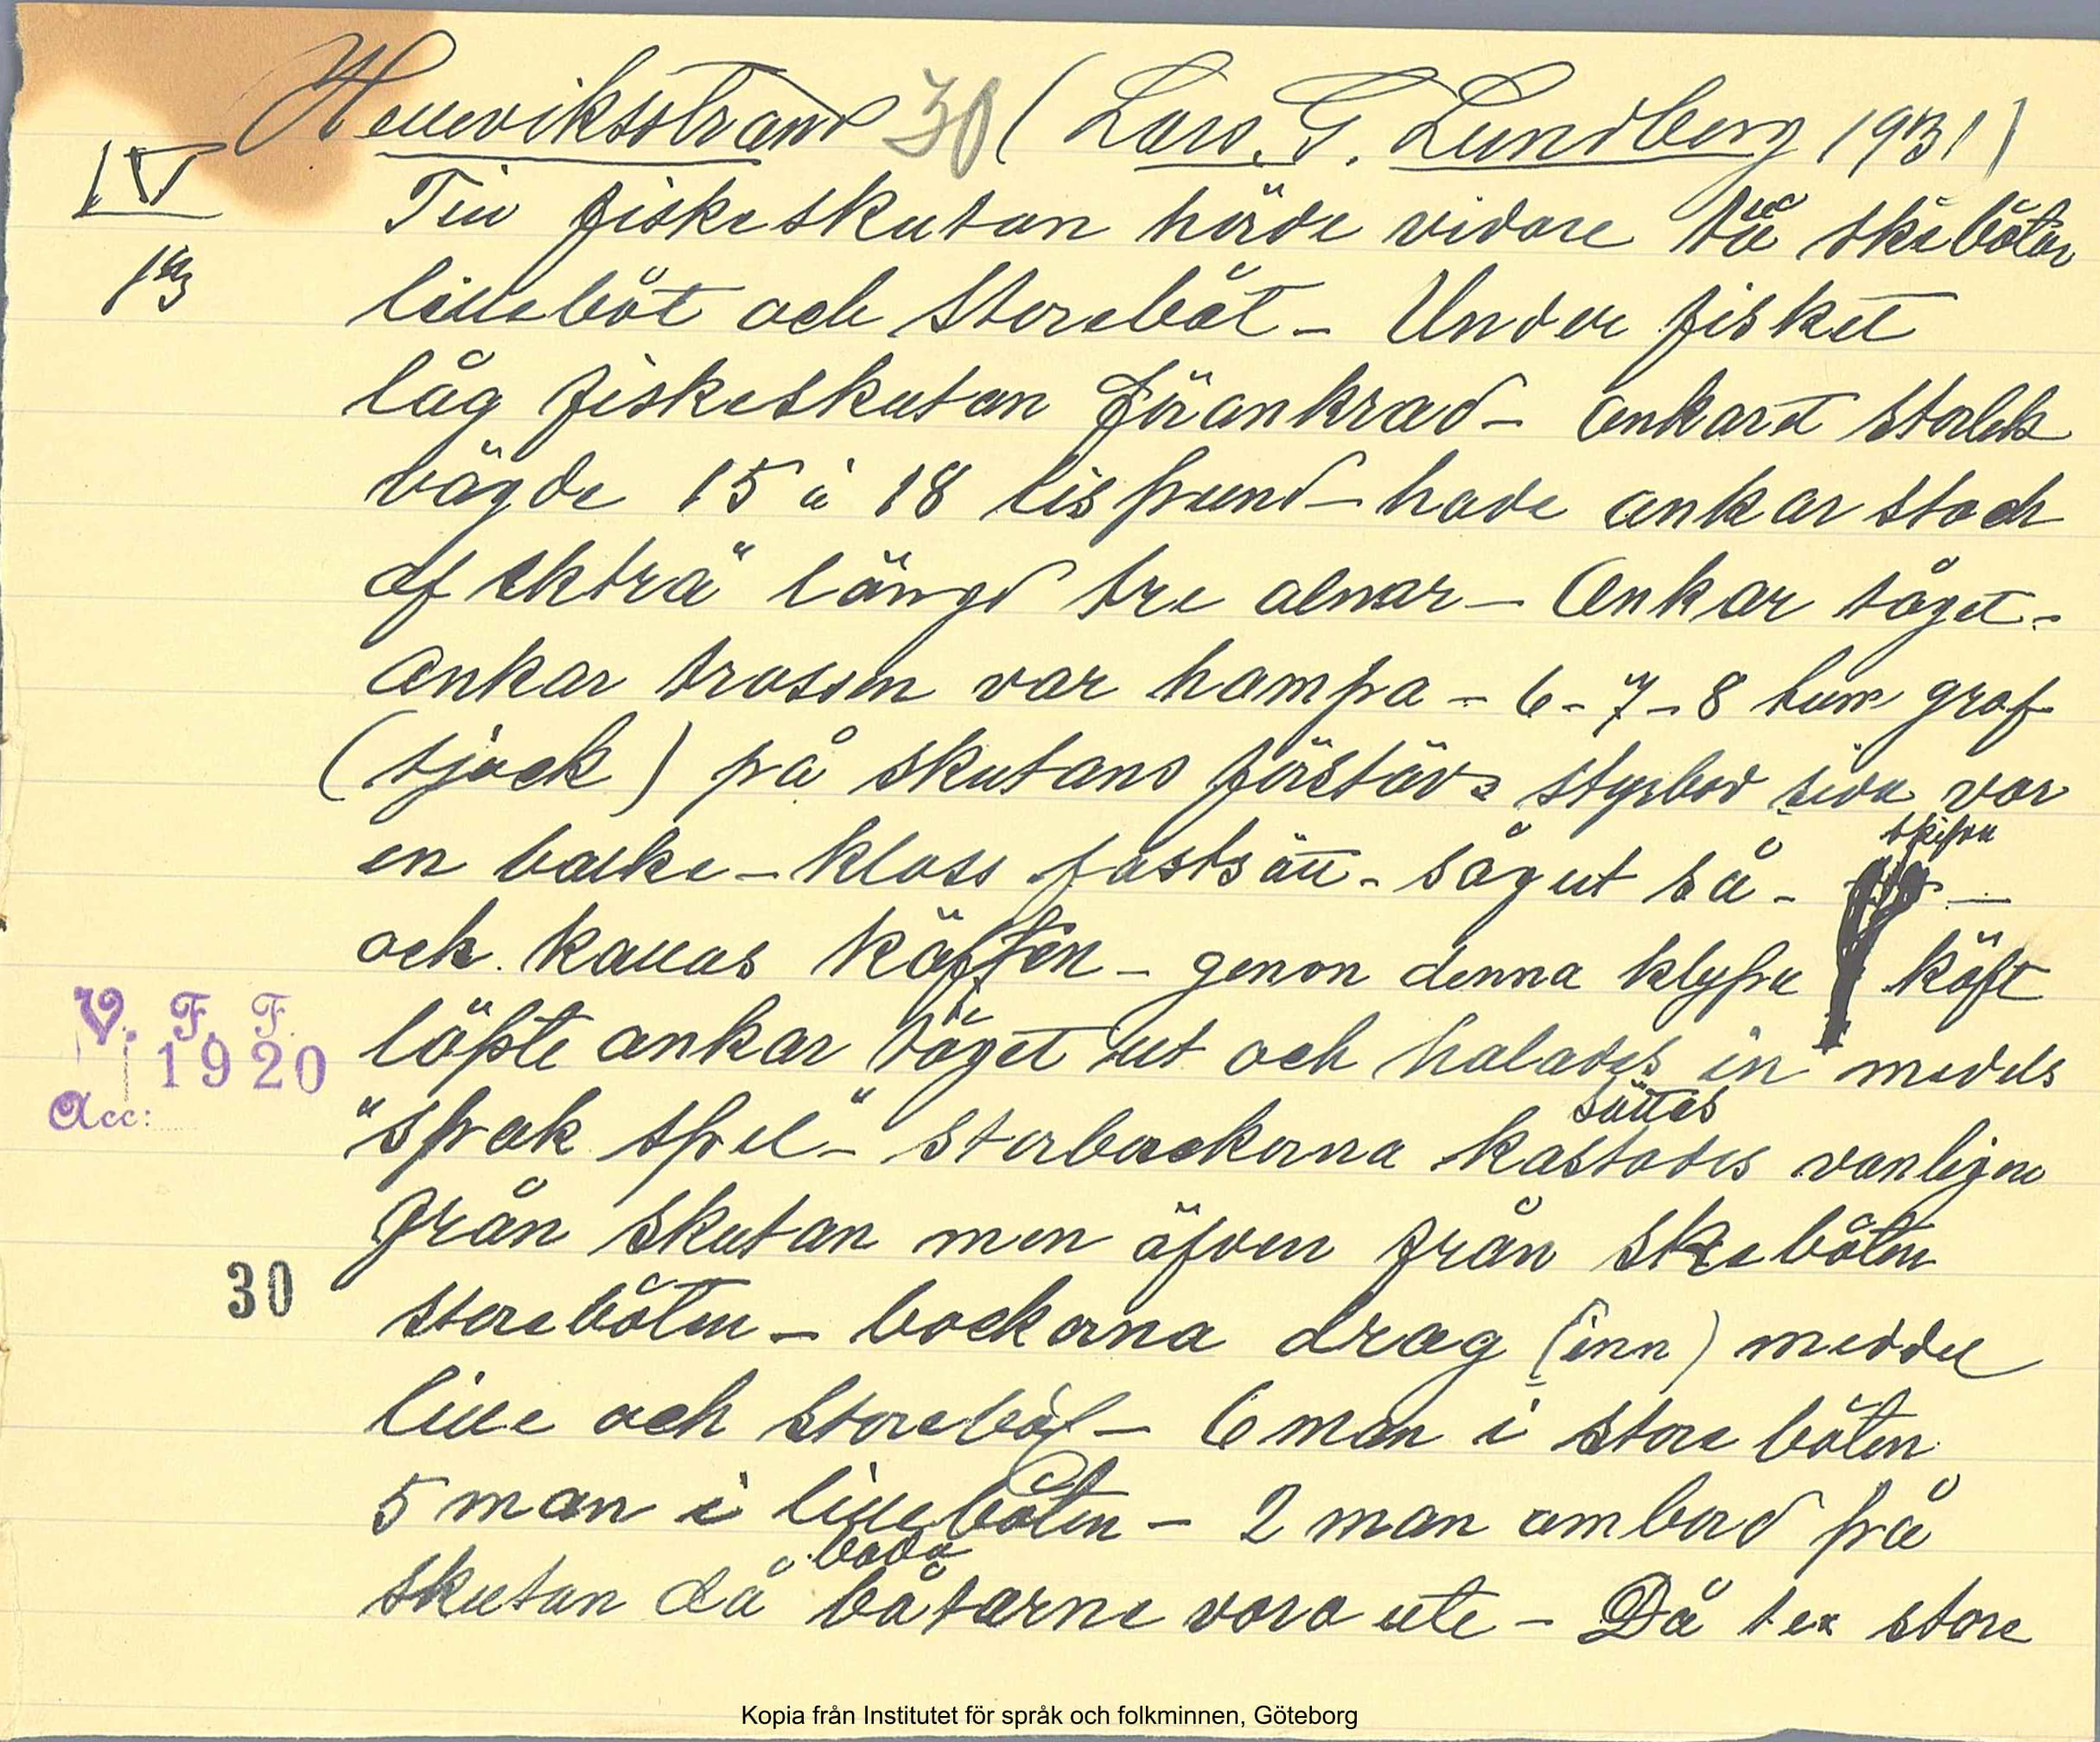 Henriksstrand 30 (Lars. G. Lundberg 1931)
IV
Till fiskeskutan hörde vidare två skebåtar
lillebåt och Storebåt - Under fisket
låg fiskeskutan förankrad - ankaret
vägde 15 à 18 lispund - hade ankar stock
af ekträ" längd tre alnar - Ankar tåget -
Ankar trossen var hampa - 6 - 7 - 8 tum grof
(tjock) på skutans förstävs styrbord sida var
en balke - kloss fastsatt - såg ut så -
och kallas käften - genon denna klyfva käft
löpte ankar tåget ut och halades in medels
"sprak spel -" storbackorna kastades sättes vanligen
från skutan men äfven från skebåten
storebåten - backorna drog (inn) meddel
lille och storebåt - 6 man i store båten
5 man i lillebåten - 2 man ombord på
skutan då båda båtarne voro ute - Då tex store
V. F. F.
1920
Acc:
30
Kopia från Institutet för språk och folkminnen, Göteborg